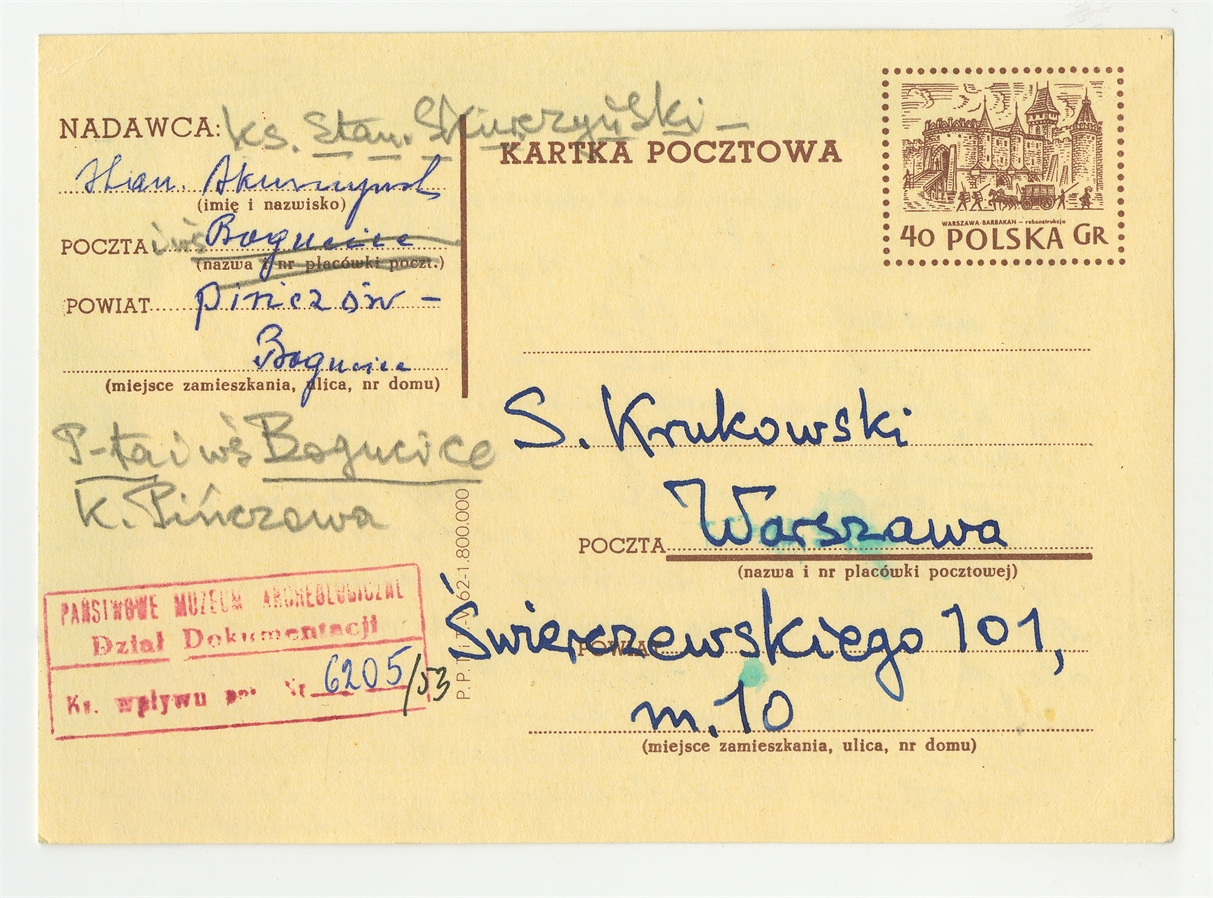 NADAWCA: ks. Stan. Skurczyński –
KARTKA POCZTOWA
Stan.
(imię i nazwisko)
POCZTA i wś Bogucice
(nazwa i nr placówki poczt.)
POWIAT Pińczów –
Bogucice
(miejsce zamieszkania, ulica, nr domu)
P-ta i wś Bogucice
k. Pińczowa
WARSZAWA-BARBAKAN – rekonstrukcja
40 POLSKA GR
S. Krukowski
POCZTA Warszawa
(nazwa i nr placówki pocztowej)
Świerczewskiego 101,
POWIAT
m. 10
(miejsce zamieszkania, ulica, nr domu)
62-1.800.000
PAŃSTWOWE MUZEUM ARCHEOLOGICZNE
Dział Dokumentacji
Ks. wpływu Nr 6205/53